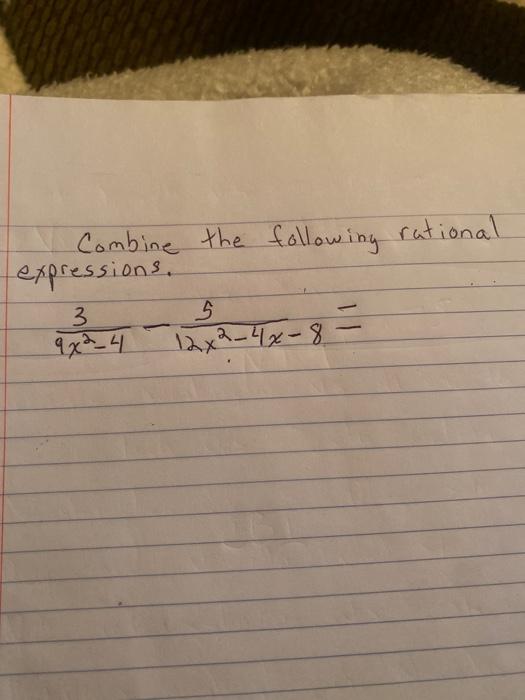 Combine the following rational
expressions.
3/(9x²-4) - 5/(12x²-4x-8) =